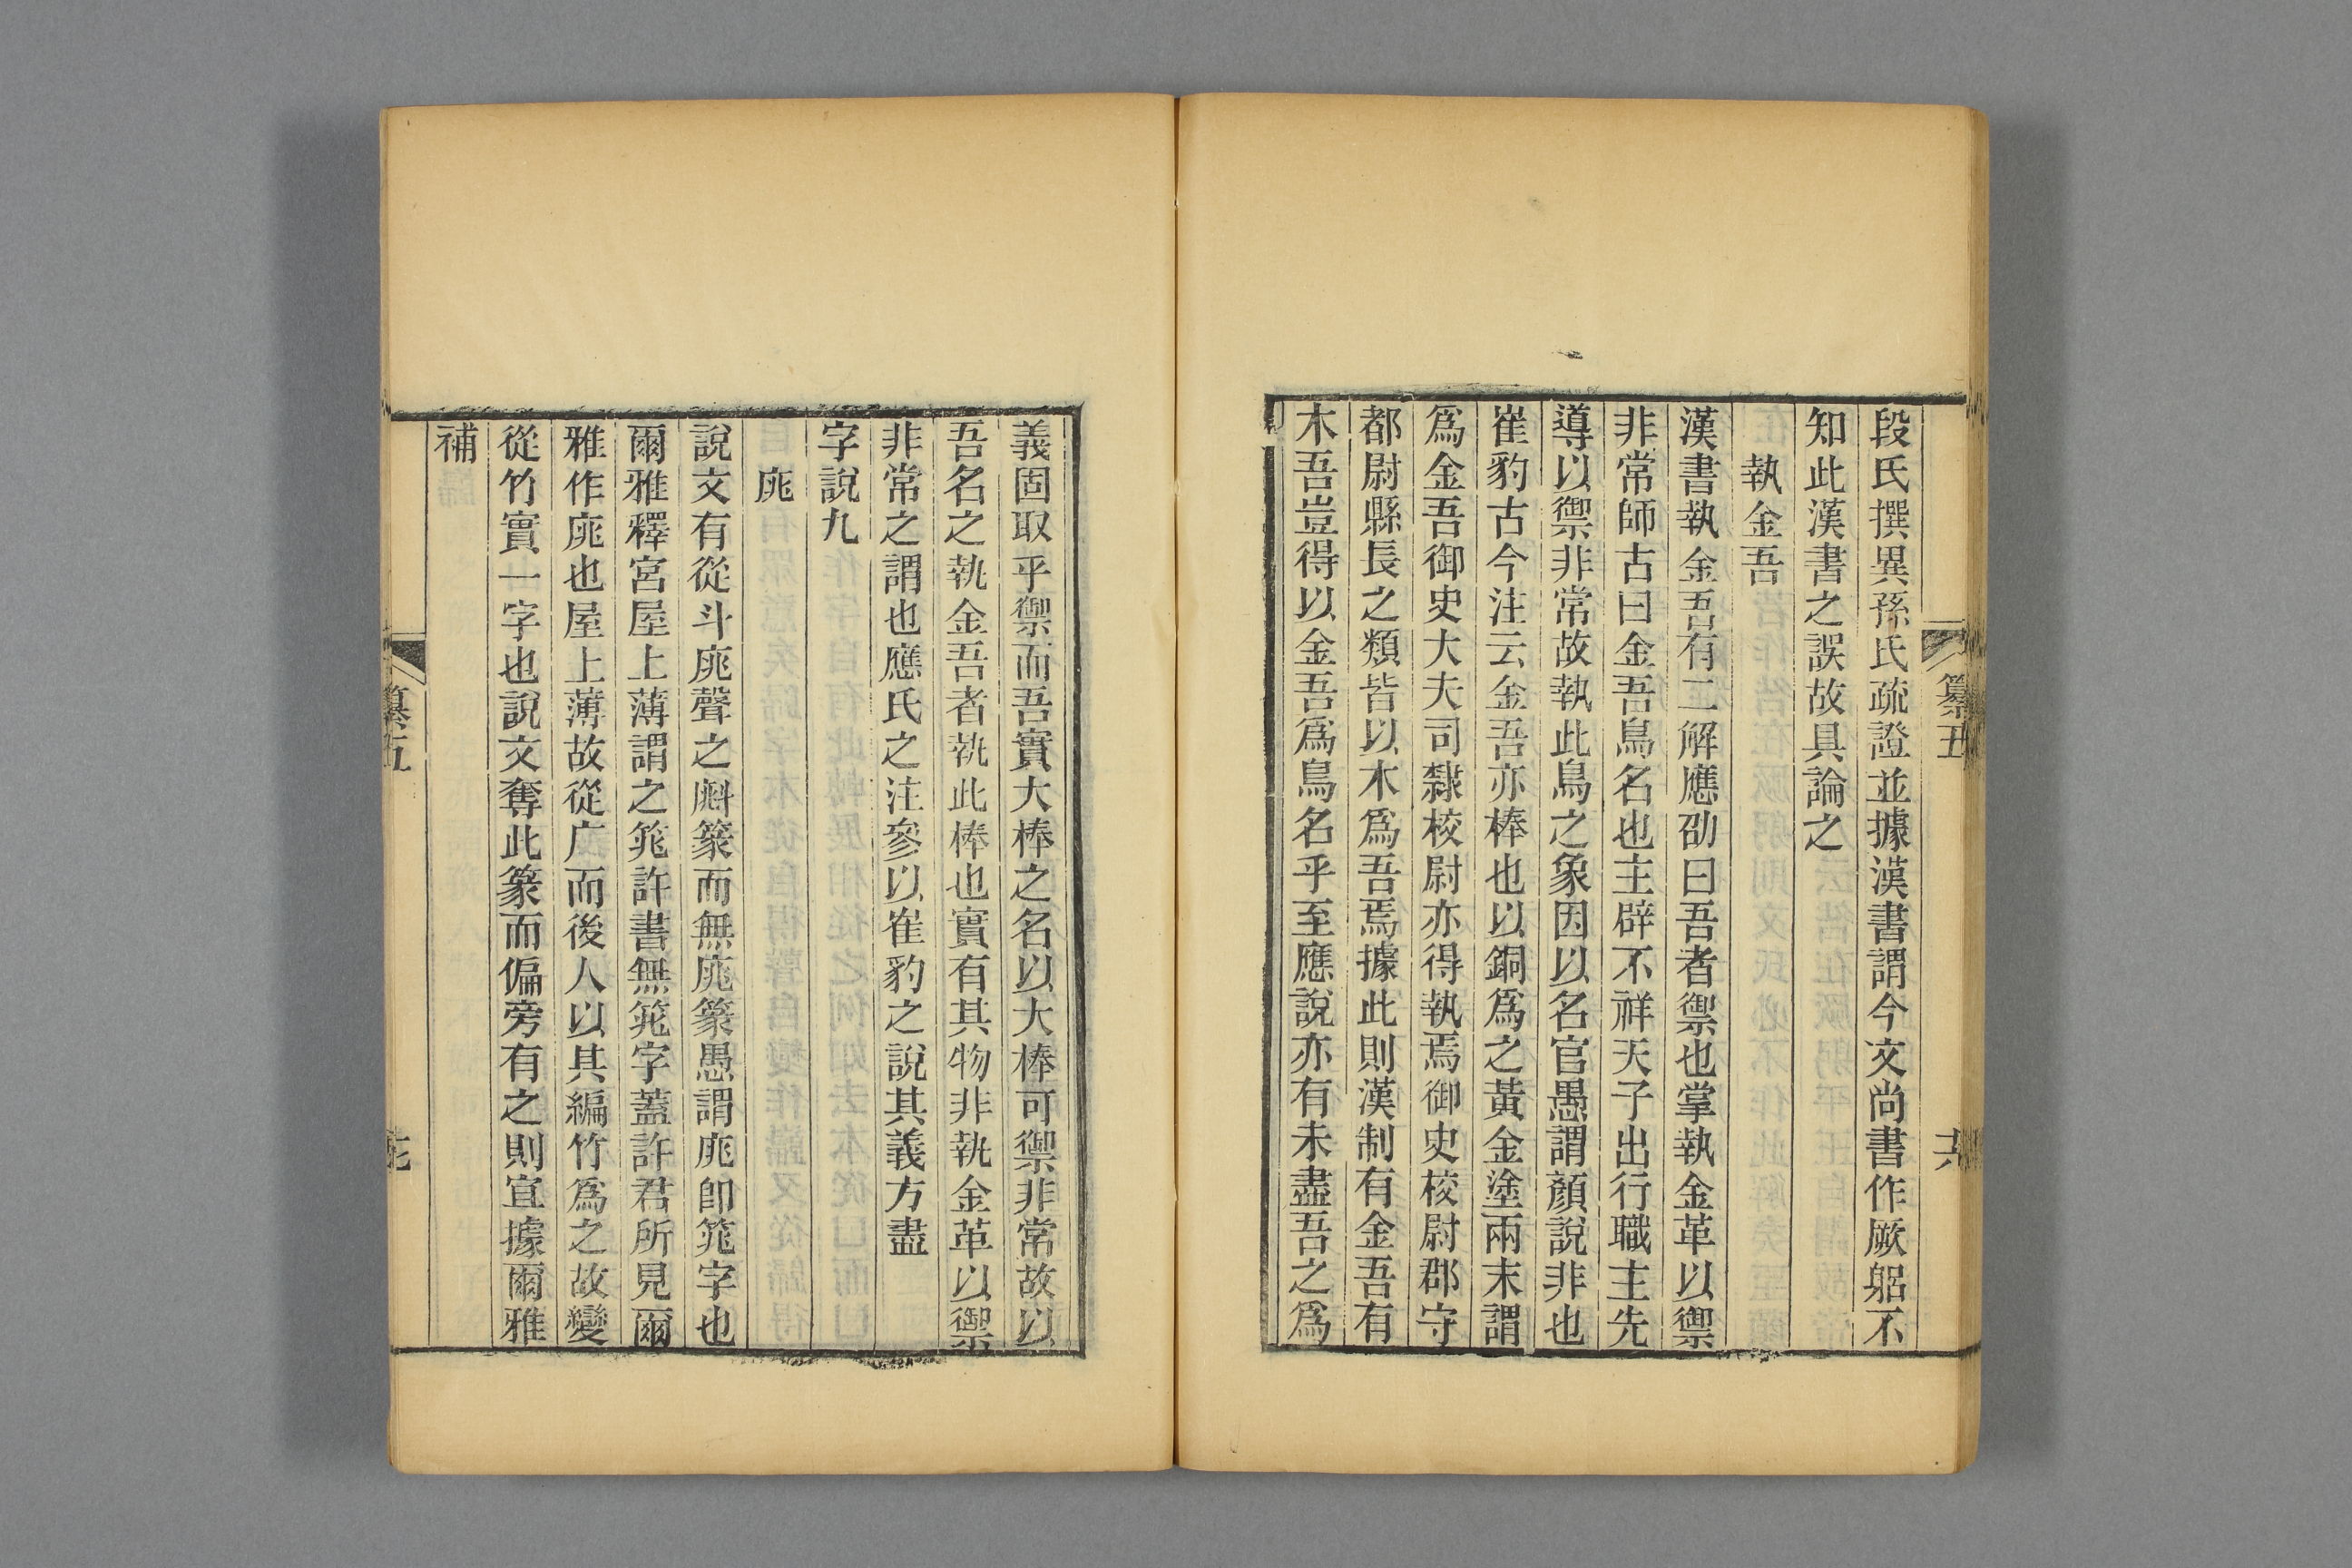 段氏撰異孫氏疏證並據漢書謂今文尚書作厥躳不
知此漢書之誤故具論之
執金吾
漢書執金吾有二解應劭曰吾者禦也掌執金革以禦
非常師古曰金吾鳥名也主辟不祥天子出行職主先
導以禦非常故執此鳥之象因以名官愚謂顏說非也
崔豹古今注云金吾亦棒也以銅爲之黃金塗兩末謂
爲金吾御史大夫司隸校尉亦得執焉御史校尉郡守
都尉縣長之類皆以木爲吾焉據此則漢制有金吾有
木吾豈得以金吾爲鳥名乎至應說亦有未盡吾之爲
義固取乎禦而吾實大棒之名以大棒可禦非常故以
吾名之執金吾者執此棒也實有其物非執金革以禦
非常之謂也應氏之注參以崔豹之說其義方盡
字說九
庣
說文有從斗庣聲之斛篆而無庣篆愚謂庣卽筄字也
爾雅釋宮屋上薄謂之筄許書無筄字蓋許君所見爾
雅作庣也屋上薄故從广而後人以其編竹爲之故變
從竹實一字也說文奪此篆而偏旁有之則宜據爾雅
補
纂五